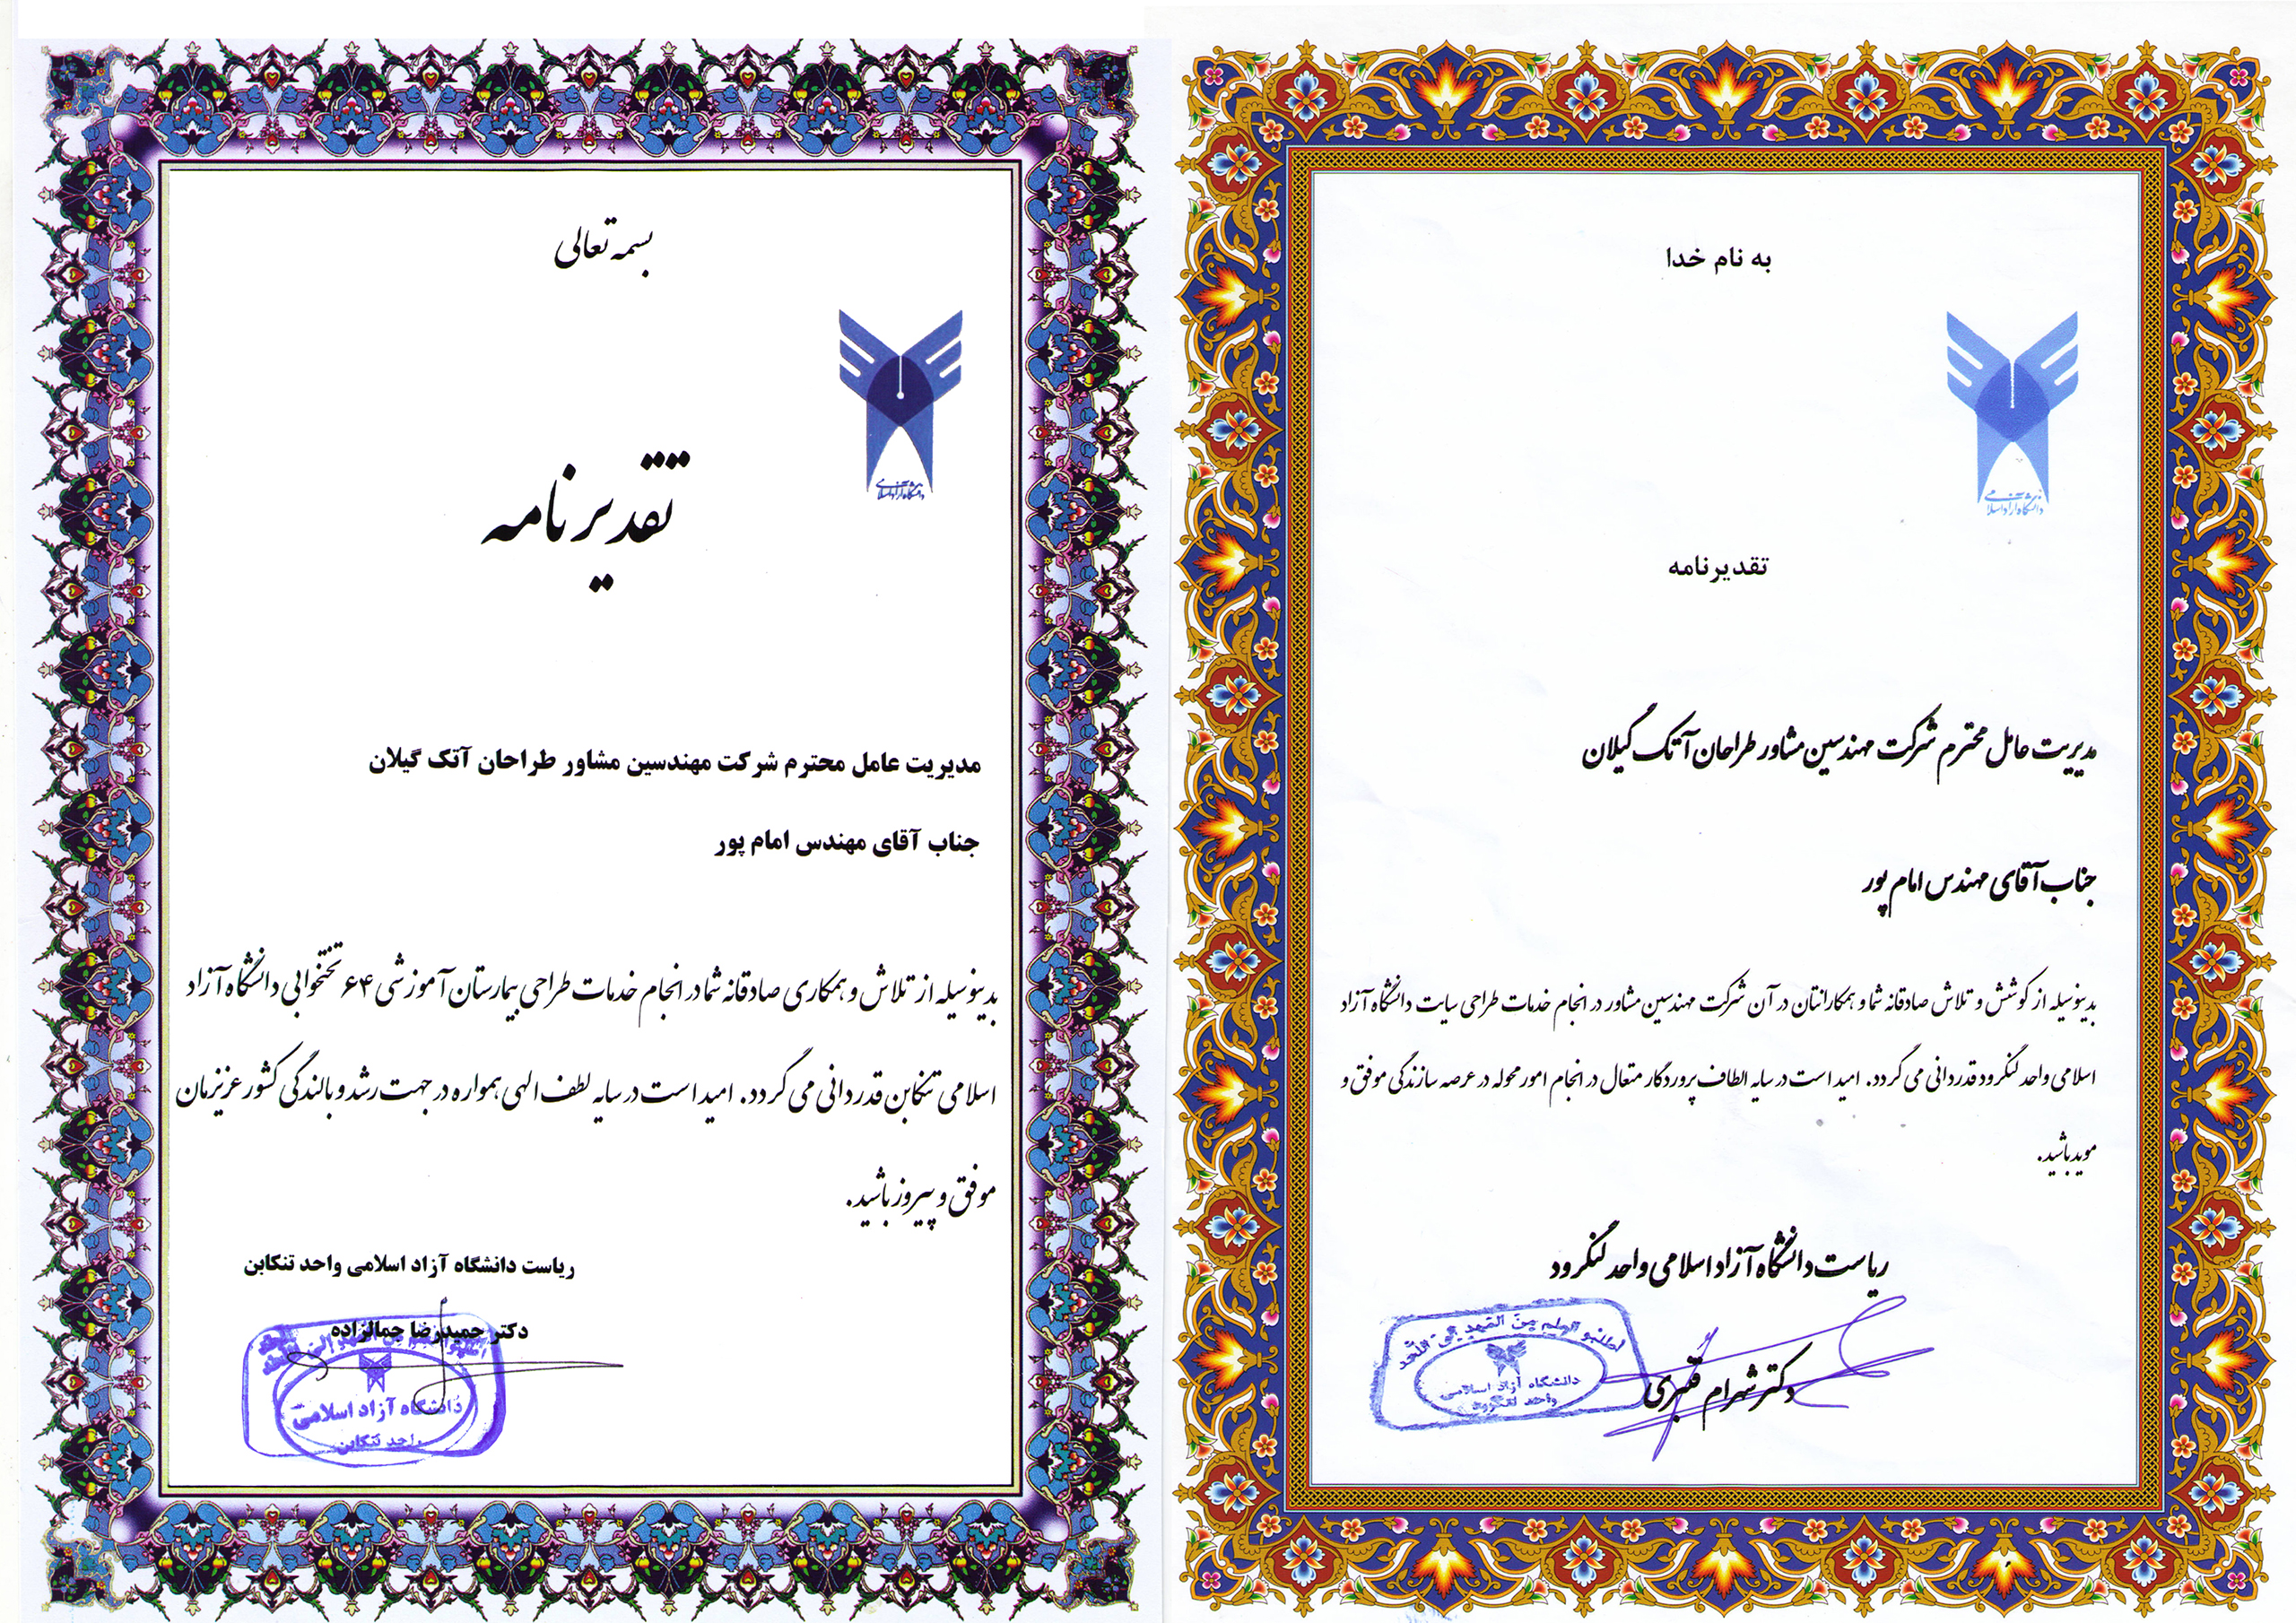 به نام خدا
دانشگاه آزاد اسلامی
تقدیرنامه
مدیریت عامل محترم شرکت مهندسین مشاور طراحان آتک گیلان
جناب آقای مهندس امام پور
بدینوسیله از کوشش و تلاش صادقانه شما و همکارانتان در آن شرکت مهندسین مشاور در انجام خدمات طراحی سایت دانشگاه آزاد
اسلامی واحد لنگرود قدردانی می گردد. امید است در سایه الطاف پروردگار متعال در انجام امور محوله در عرصه سازندگی موفق و
موید باشید.
ریاست دانشگاه آزاد اسلامی واحد لنگرود
دکتر شهرام قنبری
اطلبو العلم من المهد الی اللحد
دانشگاه آزاد اسلامی
واحد لنگرود
بسمه تعالی
دانشگاه آزاد اسلامی
تقدیرنامه
مدیریت عامل محترم شرکت مهندسین مشاور طراحان آتک گیلان
جناب آقای مهندس امام پور
بدینوسیله از تلاش و همکاری صادقانه شما در انجام خدمات طراحی بیمارستان آموزشی ۶۴ تختخوابی دانشگاه آزاد
اسلامی تنکابن قدردانی می گردد. امید است در سایه لطف الهی همواره در جهت رشد و بالندگی کشور عزیزمان
موفق و پیروز باشید.
ریاست دانشگاه آزاد اسلامی واحد تنکابن
دکتر حمیدرضا جمالزاده
دانشگاه آزاد اسلامی
واحد تنکابن